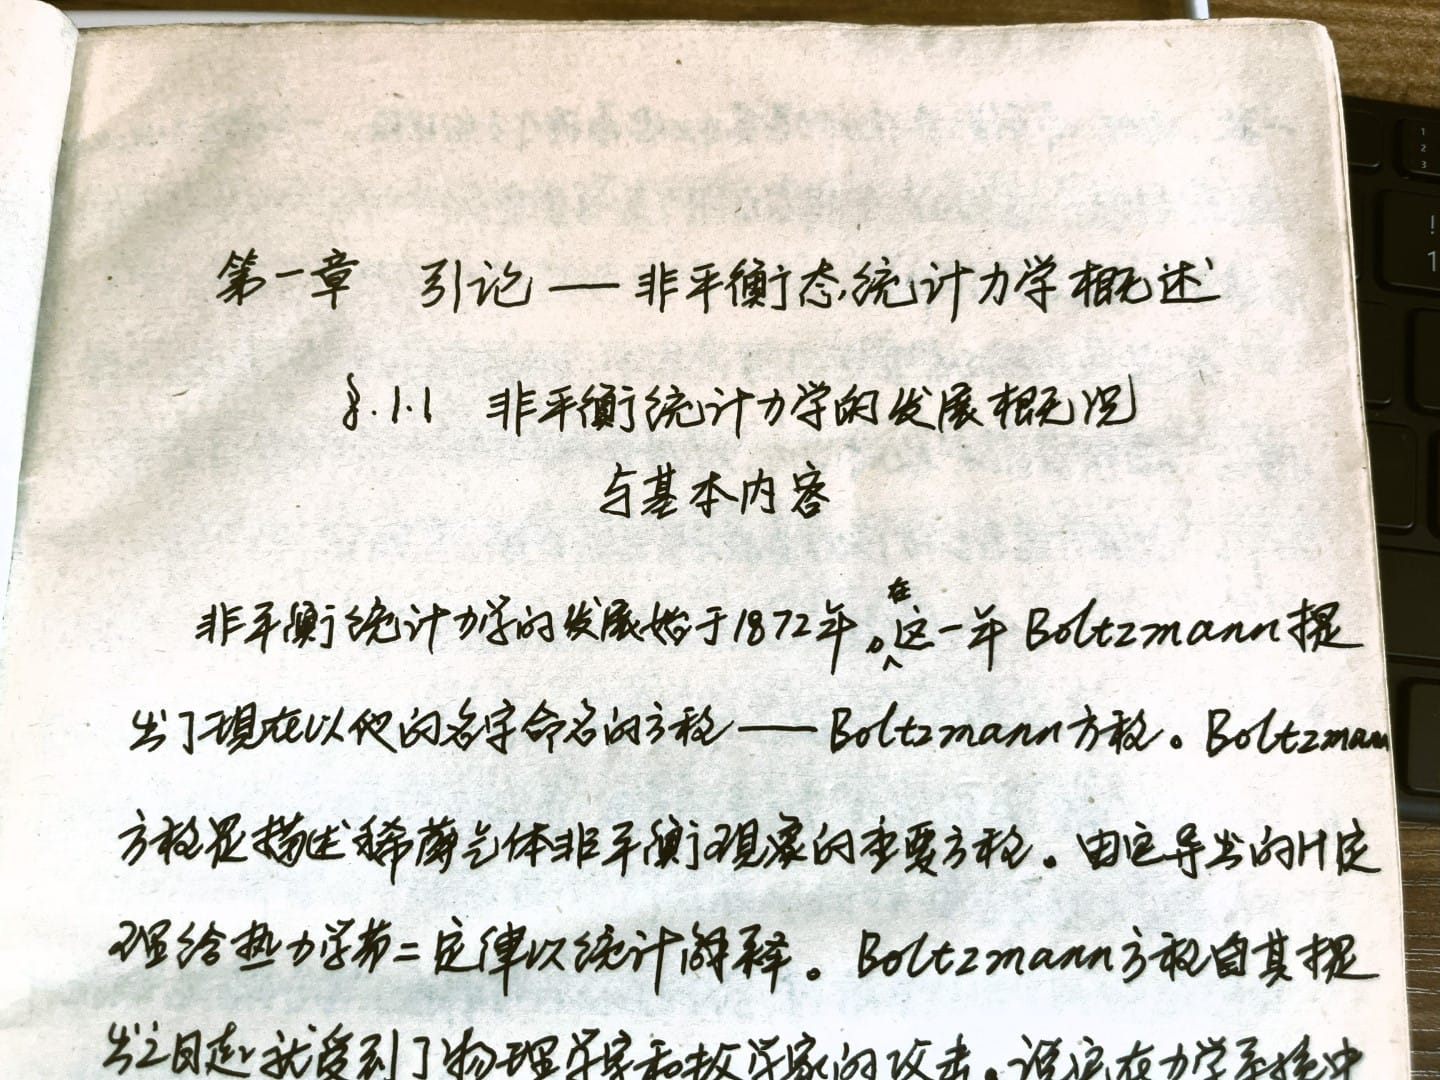 第一章 引论——非平衡态统计力学概述
§.1.1 非平衡统计力学的发展概况
与基本内容
非平衡统计力学的发展始于1872年。在这一年 Boltzmann 提
出了现在以他的名字命名的方程——Boltzmann方程。Boltzmann
方程是描述稀薄气体非平衡现象的重要方程。由它导出的H定
理给热力学第二定律以统计解释。Boltzmann方程自其提
出之日起就受到了物理学家和数学家的攻击。说它在力学系统中